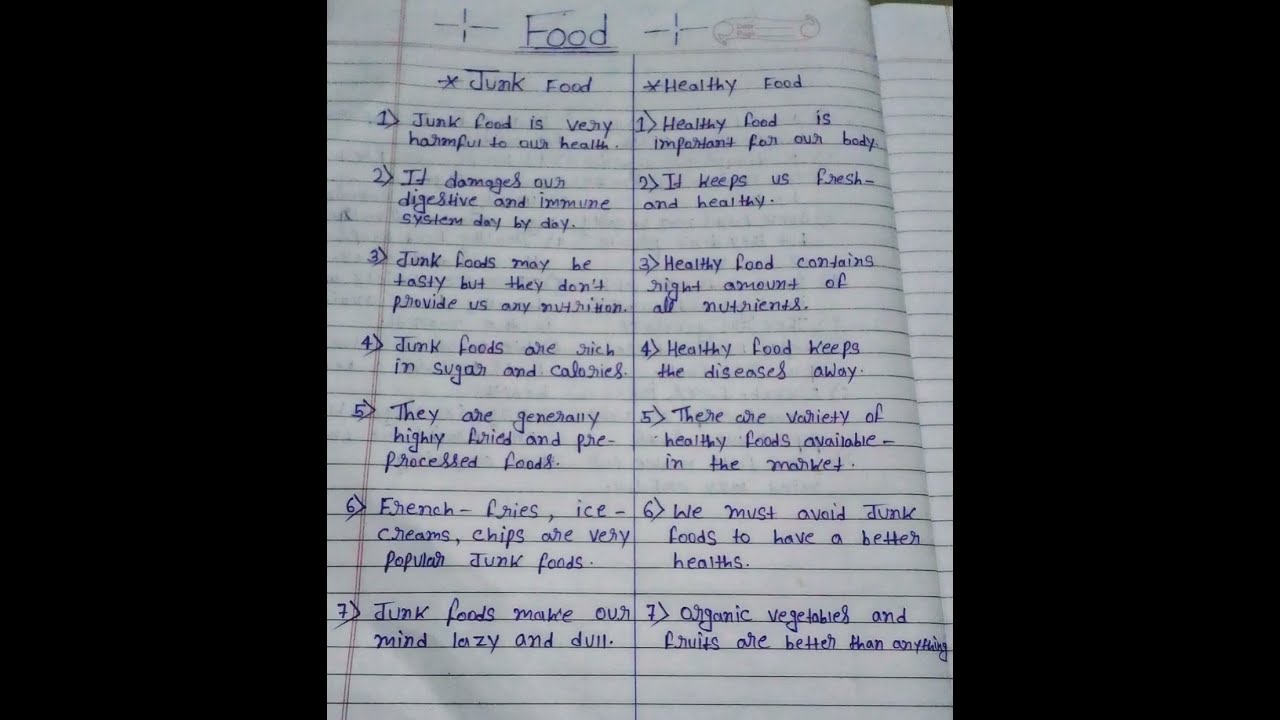 Food
* Junk Food
1) Junk food is very
harmful to our health.
2) It damages our
digestive and immune
system day by day.
3) Junk foods may be
tasty but they don't
provide us any nutrition.
4) Junk foods are rich
in sugar and calories.
5) They are generally
highly fried and pre-
processed foods.
6) French- fries, ice-
creams, chips are very
popular Junk foods.
7) Junk foods make our
mind lazy and dull.
* Healthy Food
1) Healthy food is
important for our body.
2) It keeps us fresh-
and healthy.
3) Healthy food contains
right amount of
all nutrients.
4) Healthy food keeps
the diseases away.
5) There are variety of
healthy foods available-
in the market.
6) We must avoid Junk
foods to have a better
healths.
7) Organic vegetables and
fruits are better than anything